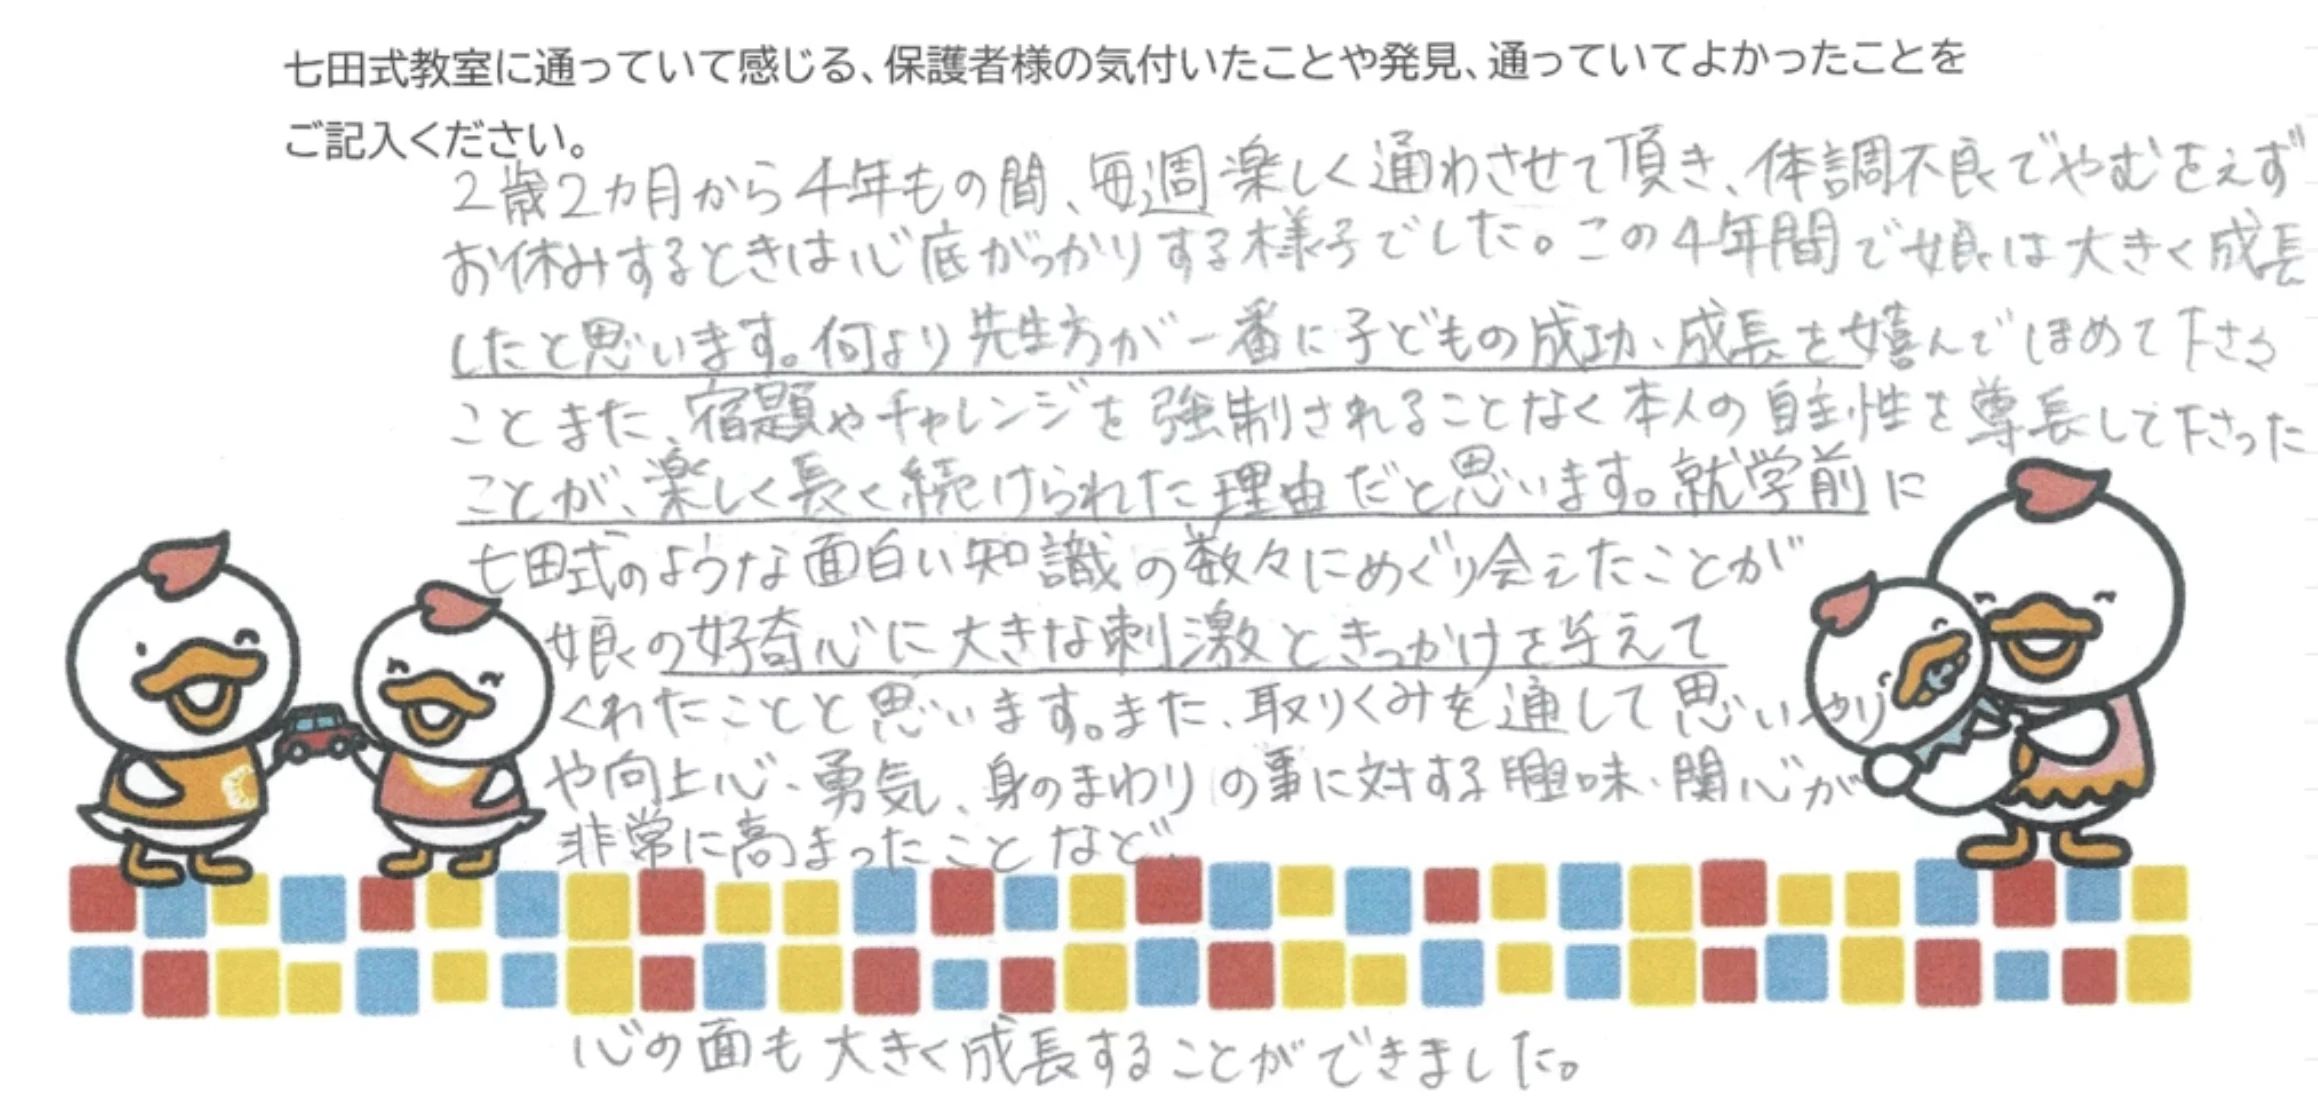 七田式教室に通っていて感じる、保護者様の気付いたことや発見、通っていてよかったことを
ご記入ください。
2歳2カ月から4年もの間、毎週楽しく通わさせて頂き、体調不良でやむをえず
お休みするときは心底がっかりする様子でした。この4年間で娘は大きく成長
したと思います。何より先生方が一番に子どもの成功、成長を嬉んでほめて下さる
ことまた、宿題やチャレンジを強制されることなく本人の自主性を尊長して下さった
ことが、楽しく長く続けられた理由だと思います。就学前に
七田式のような面白い知識の数々にめぐり会えたことが
娘の好奇心に大きな刺激ときっかけを与えて
くれたことと思います。また、取りくみを通して思いやり
や向上心、勇気、身のまわりの事に対する興味・関心が
非常に高まったことなど、
心の面も大きく成長することができました。